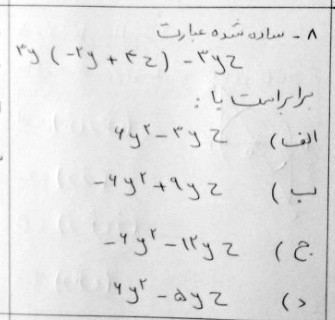 ۸ - ساده شده عبارت
۳y (-۲y + ۴z) - ۳yz
برابر است با :
الف) ۶y² - ۳yz
ب) -۶y² + ۹yz
ج) -۶y² - ۱۲yz
د) ۶y² - ۵yz